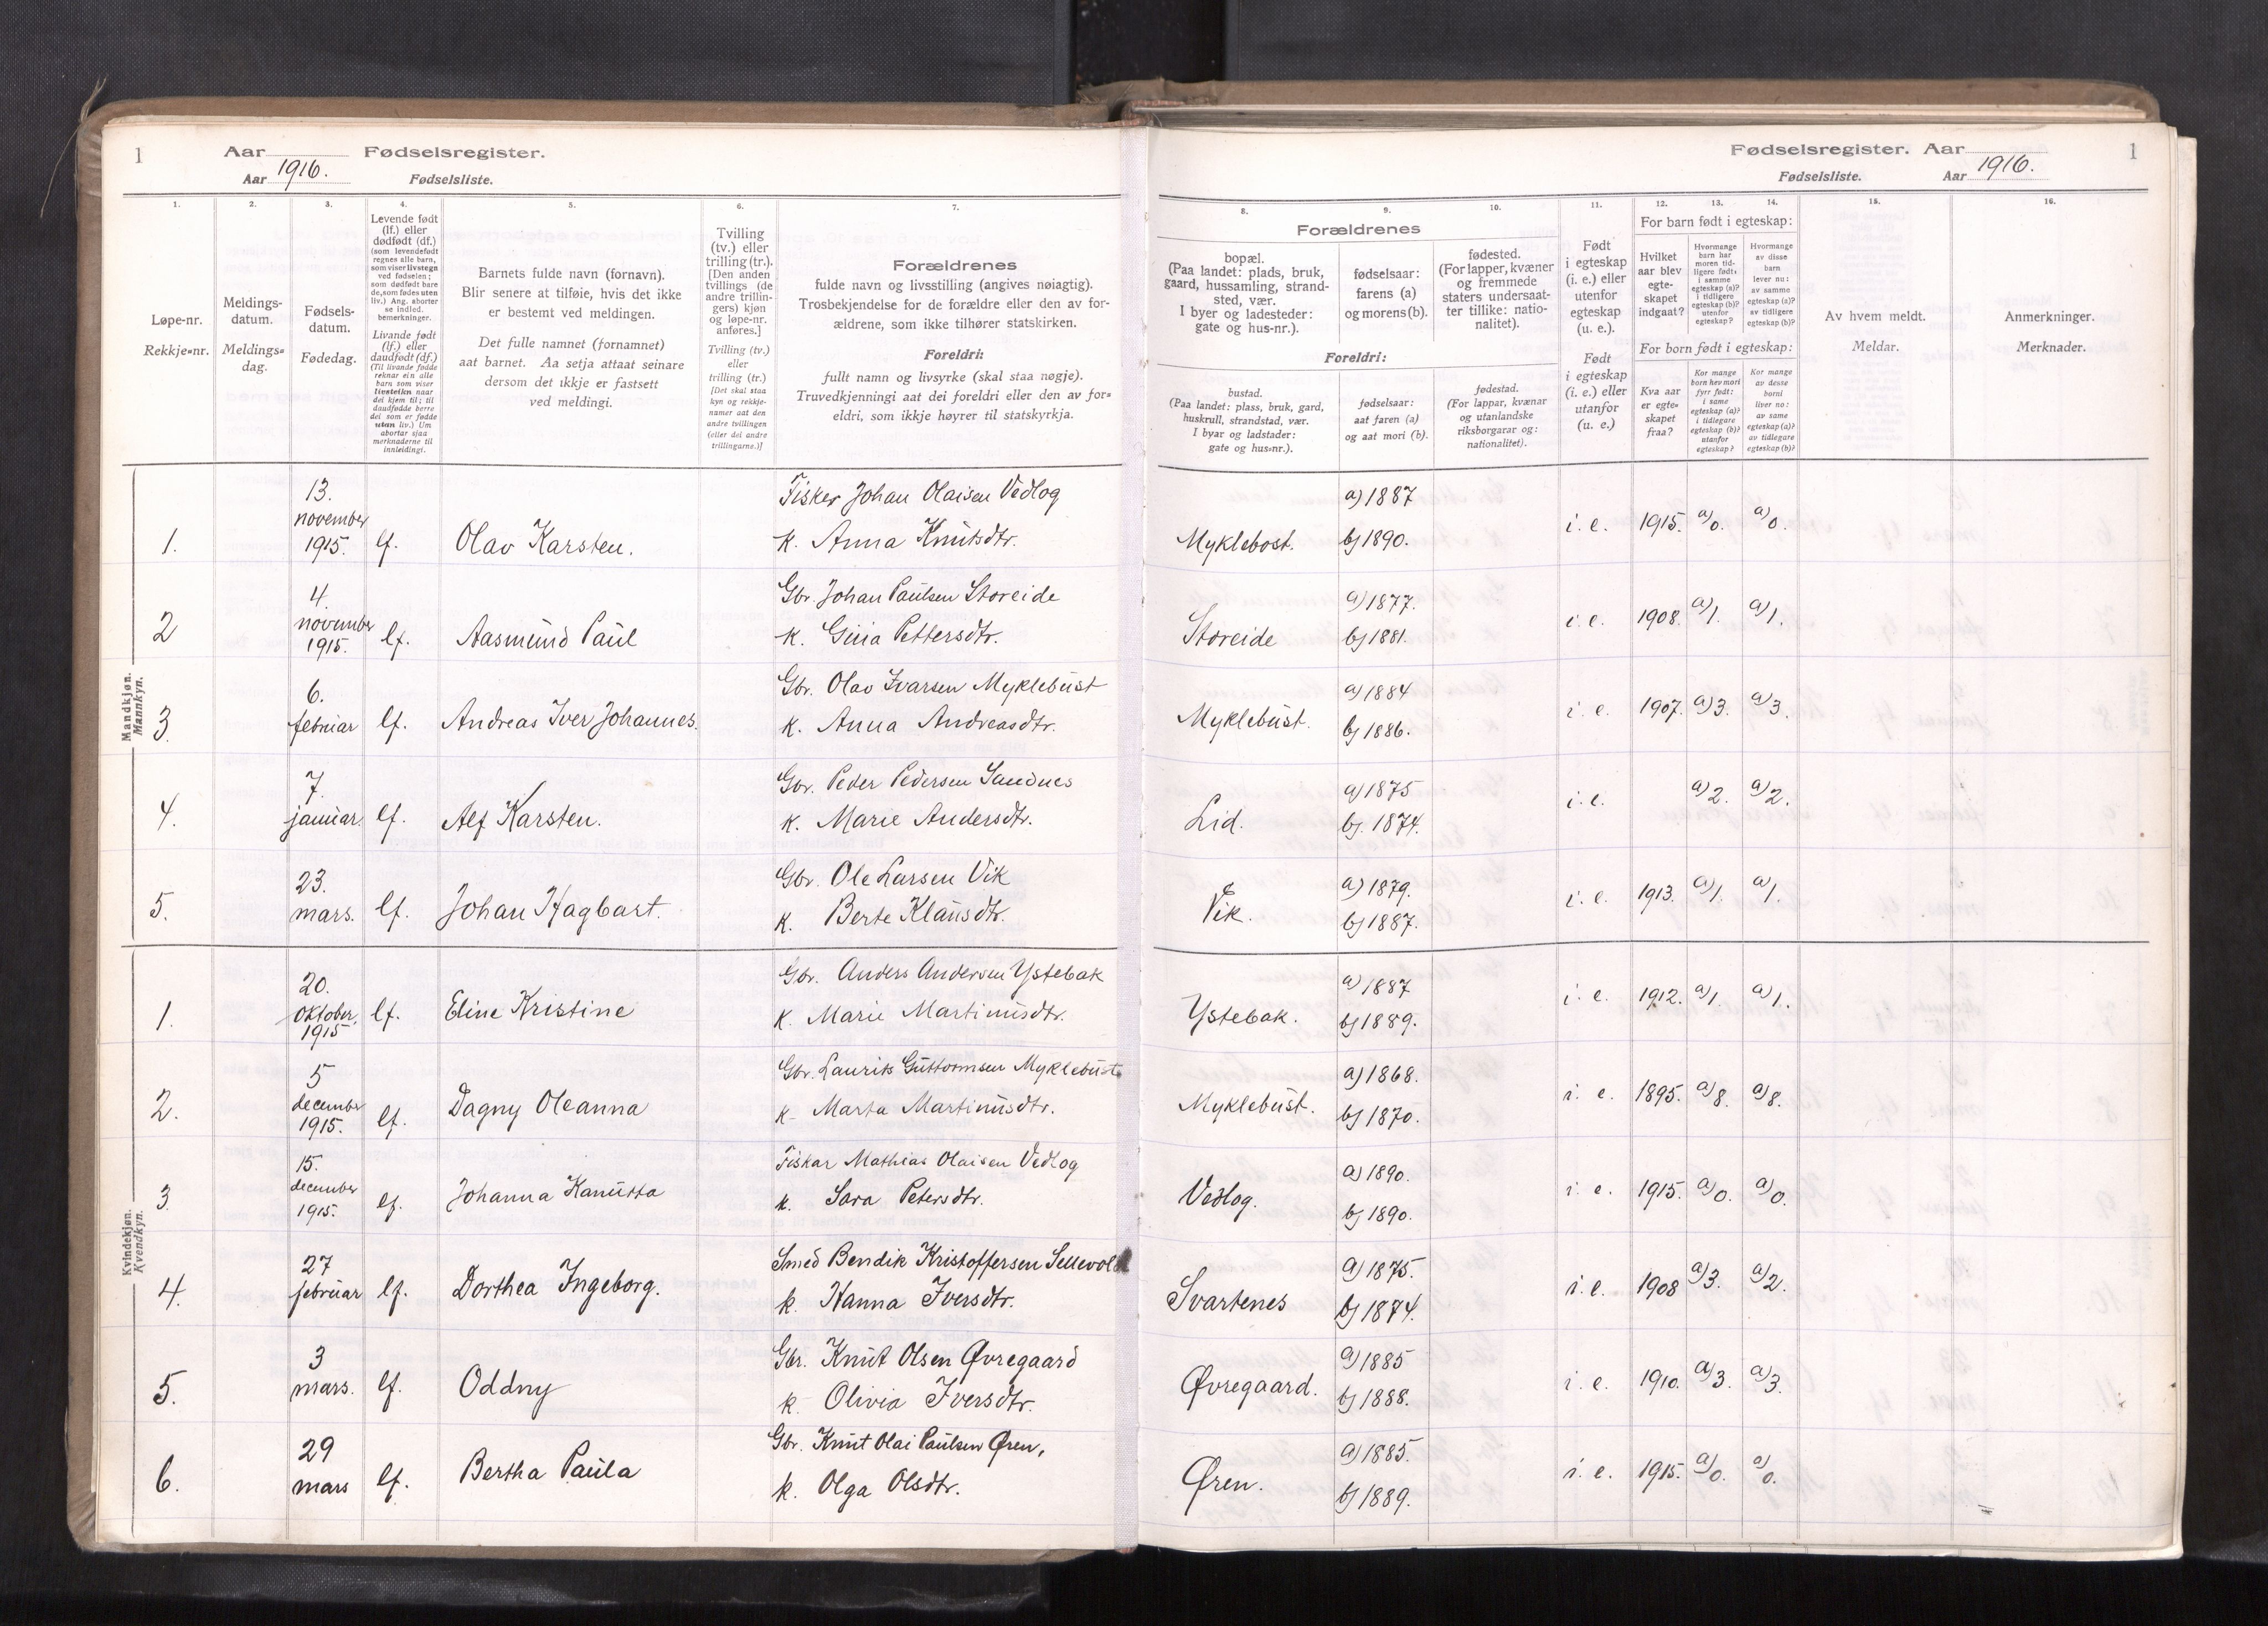 1
Aar Fødselsregister.
Aar 1916. Fødselsliste.
Fødselsregister. Aar
1
Fødselsliste. Aar 1916.
1.
Løpe-nr.
Rekkje=nr.
2.
Meldings-
datum.
Meldings=
dag.
3.
Fødsels-
datum.
Fødedag.
4.
Levende født
(lf.) eller
dødfødt (df.)
(som levendefødt
regnes alle barn,
som viser livstegn
ved fødselen;
som dødfødt bare
de, som fødes uten
liv.) Ang. aborter
se indled.
bemerkninger.
Livande født
(lf.) eller
daudfødt (df.)
(Til livande fødde
reknar ein alle
barn som viser
livsteikn naar
dei kjem til; til
daudfødde berre
dei som er fødde
utan liv.) Um
abortar sjaa
merknaderne til
innleidingi.
5.
Barnets fulde navn (fornavn).
Blir senere at tilføie, hvis det ikke
er bestemt ved meldingen.
Det fulle namnet (fornamnet)
aat barnet. Aa setja attaat seinare
dersom det ikkje er fastsett
ved meldingi.
6.
Tvilling
(tv.) eller
trilling (tr.).
[Den anden
tvillings (de
andre trillin-
gers) kjøn
og løpe-nr.
anføres.]
Tvilling (tv.)
eller
trilling (tr.)
[Det skal staa
kyn og rekkje-
numer aat den
andre tvillingen
(eller dei andre
trillingarne.)]
7.
Forældrenes
fulde navn og livsstilling (angives nøiagtig).
Trosbekjendelse for de forældre eller den av for-
ældrene, som ikke tilhører statskirken.
Foreldri:
fullt namn og livsyrke (skal staa nøgje).
Truvedkjenningi aat dei foreldri eller den av for=
eldri, som ikkje høyrer til statskyrkja.
8.
9.
10.
Forældrenes
bopæl.
(Paa landet: plads, bruk,
gaard, hussamling, strand-
sted, vær.
I byer og ladesteder:
gate og hus-nr.).
fødselsaar:
farens (a)
og morens (b).
fødested.
(For lapper, kvæner
og fremmede
staters undersaat-
ter tillike: natio-
nalitet).
Foreldri:
bustad.
(Paa landet: plass, bruk, gard,
huskrull, strandstad, vær.
I byar og ladstader:
gate og hus=nr.).
fødselsaar:
aat faren (a)
og aat mori (b).
fødestad.
(For lappar, kvænar
og utanlandske
riksborgarar og:
nationalitet).
11.
Født
i egteskap
(i. e.) eller
utenfor
egteskap
(u. e.).
Født
i egteskap
(i. e.) eller
utanfor
(u. e.)
12.
13.
14.
For barn født i egteskap:
Hvilket
aar blev
egte-
skapet
indgaat?
Hvormange
barn har
moren tid-
ligere født:
i samme
egteskap (a)?
i tidligere
egteskap (b)?
utenfor
egteskap?
Hvormange
av disse
barn
lever nu:
av samme
egteskap (a)?
av tidligere
egteskap (b)?
For born født i egteskap:
Kva aar
er egte=
skapet
fraa?
Kor mange
born hev mori
fyrr født:
i same
egteskap (a)?
i tidlegare
egteskap (b)?
utanfor
egteskap?
Kor mange
av desse
borni
liver no:
av same
egteskap (a)?
av tidlegare
egteskap (b)?
15.
Av hvem meldt.
Meldar.
16.
Anmerkninger.
Merknader.
Mandkjøn.
Mannkyn.
13.
november
1. 1915. lf. Olav Karsten.
Fisker Johan Olaisen Vedlog
k. Anna Knutsdtr.
Myklebost. a) 1887 b) 1890. i. e. 1915. a) 0. a) 0.
4.
november
2 1915. lf. Aasmund Paul
Gbr. Johan Paulsen Storeide
k. Gina Pettersdtr.
Storeide a) 1877. b) 1881. i. e. 1908. a) 1. a) 1.
6.
3. februar lf. Andreas Iver Johannes.
Gbr. Olav Ivarsen Myklebust
k. Anna Andreasdtr.
Myklebust. a) 1884 b) 1886. i. e. 1907. a) 3. a) 3.
7.
4. januar. lf. Alf Karsten.
Gbr. Peder Pedersen Sandnes
k. Marie Andersdtr.
Lid. a) 1875 b). 1874. i. e. a) 2. a) 2.
23.
5. mars. lf. Johan Hagbart.
Gbr. Ole Larsen Vik
k. Berte Klausdtr.
Vik. a) 1879. b) 1887. i. e. 1913. a) 1. a) 1.
Kvindekjøn.
Kvendkyn.
20.
1. oktober, lf. Eline Kristine
1915
Gbr. Anders Andersen Ystebak
k. Marie Martinusdtr.
Ystebak. a) 1887 b) 1889. i. e. 1912. a) 1. a) 1.
5
december
2. 1915. lf. Dagny Oleanna
Gbr. Laurits Guttormsen Myklebust
k. Marta Martinusdtr.
Myklebust. a) 1868. b) 1870. i. e. 1895. a) 8. a) 8.
15.
december
3. 1915. lf. Johanna Kanutta
Fiskar Mathias Olaisen Vedlog
k. Sara Petersdtr.
Vedlog. a) 1890. b) 1890. i. e. 1915. a) 0. a) 0.
27
4. februar lf. Dorthea Ingeborg.
Smed Bendik Kristoffersen Sellevold
k. Hanna Iversdtr.
Svartenes a) 1875. b) 1874. i. e. 1908 a) 3. a) 2.
3
5. mars. lf. Oddny
Gbr. Knut Olsen Øvregaard
k. Olivia Iversdtr.
Øvregaard. a) 1885 b) 1888. i. e. 1910. a) 3. a) 3.
29
6. mars lf. Bertha Paula
Gbr. Knut Olai Paulsen Øren,
k. Olga Olsdtr.
Øren. a) 1885. b) 1889. i. e. 1915. a) 0. a) 0.